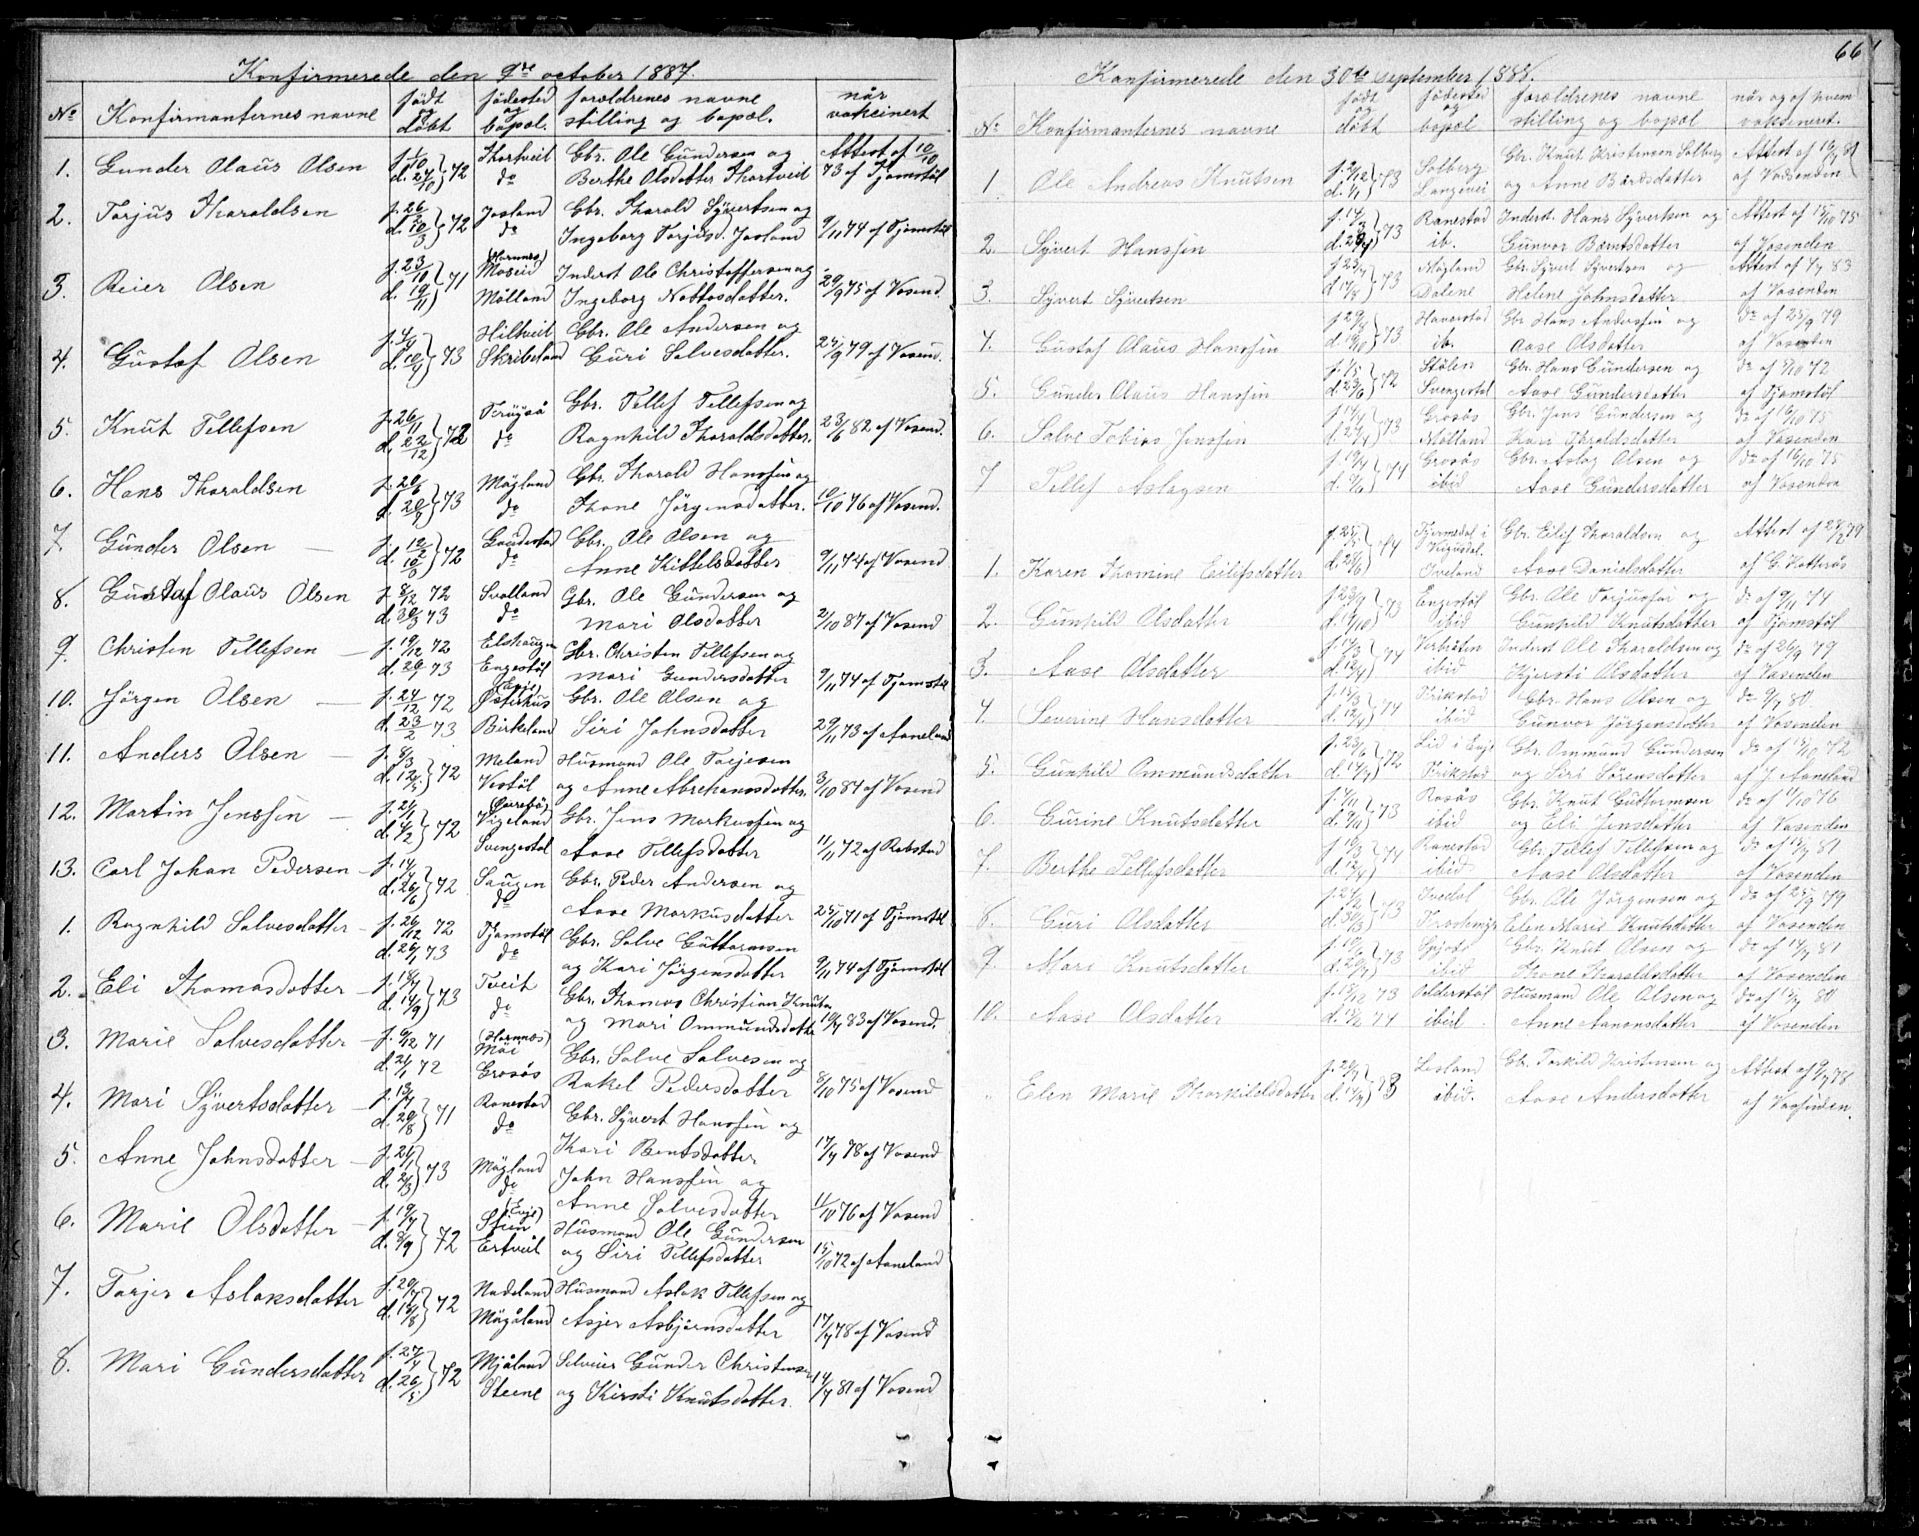 Konfirmerede den 9de october 1887.
No Konfirmanternes navne født og døbt fødested og bopæl. forældrenes navne stilling og bopæl. når vakcinert
1. Gunder Olaus Olsen f. 1/10 d. 27/10 72 Thortveit do Gbr. Ole Gundersen og Berthe Olsdatter Thortveit Attest af 10/10 73 af Tjomstøl
2. Torjus Tharaldsen 72 Josland do Gbr. Tharald Syvertsen og Ingeborg Torjusd. Josland 9/11 74 af Tjomstøl
3. Reier Olsen f. 23/10 d. 19/11 71 (Hornnes) Moseid Mølland Inderst Ole Christoffersen og Ingeborg Nottosdatter. 29/9 75 af Vosend.
4. Gustaf Olsen 73 Hiltveit Skribeland Gbr. Ole Andersen og Guri Salvesdatter. 25/9 79 af Vosend.
5. Knut Tellefsen f. 26/11 d. 22/12 72 Frøyså do Gbr. Tellef Tellefsen og Ragnhild Tharaldsdatter. 23/6 82 af Vosend.
6. Hans Tharaldsen 73 Mögland do Gbr. Tharald Hanssen og Thone Jörgensdatter. 10/10 76 af Vosend.
7. Gunder Olsen — f. 12/2 d. 10/3 72 do Gbr. Ole Olsen og Anne Kittelsdatter 9/11 74 af Vosend
8. Gustaf Olaus Olsen f. 8/12 72 d. 30/3 73 Svalland do Gbr. Ole Gundersen og Mari Olsdatter 2/10 87 af Vosend
9. Christen Tellefsen — f. 19/12 72 73 Elshaugen Engestøl Gbr. Christen Tellefsen og Mari Gundersdatter 9/11 74 af Tjomstøl
10. Jörgen Olsen — f. 24/12 72 d. 23/2 73 (Evje) Birkeland Gbr. Ole Olsen og Siri Johnsdatter 29/11 73 af Aaneland
11. Anders Olsen — f. 8/3 d. 12/5 72 Meland Vestöl Husmand Ole Torjesen og Anne Abrehamsdatter. 3/10 84 af Vosend
12. Martin Jenssen — 72 Vigeland Svengestøl Gbr. Jens Markussen og Aase Tellefsdatter 11/11 72 af Robstad
13. Carl Johan Pedersen — f. 14/4 d. 26/6 72 Saugen do Gbr. Peder Andersen og Aase Markusdatter 25/10 71 af Tjomstøl
1. Ragnhild Salvesdatter — f. 26/12 72 d. 26/1 73 Tjomstøl do Gbr. Salve Guttormsen og Kari Jörgensdatter 9/11 74 af Tjomstøl
2. Eli Thomasdatter — d. 14/9 73 Tveit do Gbr. Thomas Christian Knuts. og Mari Ommundsdatter 19/7 83 af Vosend.
3. Marie Salvesdatter — 71 72 (Hornnes) Moi Grosås Gbr. Salve Salvesen og Rakel Pedersdatter 8/10 75 af Vosend
4. Mari Syvertsdatter — f. 13/7 d. 20/8 71 Ranestad do Gbr. Syvert Hanssen og Kari Bentsdatter 17/7 78 af Vosend
5. Anne Johnsdatter — d. 2/3 73 Mögland do John Hanssen og Anne Salvesdatter 11/10 76 af Vosend
6. Marie Olsdatter — f. 19/7 d. 8/9 72 (Evje) Stein Ertveit Husmand Ole Gundersen og Siri Tellefsdatter 15/10 72 af Aaneland
7. Torjer Aslaksdatter f. 20/7 d. 18/8 72 Nadeland Mögåland Husmand Aslak Tellefsen og Asjer Asbjörnsdatter 17/7 78 af Vosend
8. Mari Gundersdatter f. 27/4 d. 26/5 72 Mjåland Steene Selveier Gunder Christensen og Kirsti Knutsdatter. 14/7 81 af Vosend
66
Konfirmerede den 30te september 1888.
No Konfirmanternes navne født og døbt fødested og bopæl forældrenes navne stilling og bopæl når og af hvem vakcineret.
1 Ole Andreas Knutsen 73 Solberg Langevei Gbr. Knut Kristensen Solberg og Anne Bårdsdatter Attest af 16/7 81 af Vosenden
2. Syvert Hanssen 73 Ranestad ib. Inderst. Hans Syvertsen og Gunvor Berntsdatter Attest af 15/10 75 af Vosenden
3. Syvert Syvertsen 73 Mögland Dalene Gbr. Syvert Syvertsen og Helene Johnsdatter Attest af 83 af Vosenden
4. Gustaf Olaus Hanssen 73 Haverstad ib. Gbr. Hans Anderssen og Aase Olsdatter do af 25/9 79 af Vosenden
5. Gunder Olaus Hanssen 72 Stølen Svengestøl Gbr. Hans Gundersen og Aase Gundersdatter do af 72 af Tjomstøl
6. Salve Tobias Jenssen 73 Grosås Mølland Gbr. Jens Gundersen og Kari Tharaldsdatter do af 16/10 75 af Vosenden
7 Tellef Aslagsen 74 Grosås ibid Gbr. Aslag Olsen og Aase Gundersdatter do af 16/10 75 af Vosenden
1. Karen Thomine Eilefsdatter 74 Iveland Gbr. Eilef Tharaldsen og Aase Danielsdatter Attest af 79 af G. Hatterås
2. Gunhild Olsdatter 73 Engestøl ibid Gbr. Ole Torjussen og Gunhild Knutsdatter do af 9/11 74 af Tjomstøl
3. Aase Olsdatter 74 ibid Inderst Ole Tharaldsen og Kjersti Olsdatter do af 26/9 79 af Vosenden
4. Severine Hansdatter 74 Krikstad ibid Gbr. Hans Olsen og Gunvor Jörgensdatter do 9/7 80 af Vosenden
5. Gunhild Ommundsdatter 72 Lid i Evje Krikstad Gbr. Ommund Gundersen og Siri Sörensdatter do af 72 af J. Aaneland
6. Gurine Knutsdatter 73 Rosås ibid Gbr. Knut Guttormsen og Eli Jensdatter do af 11/10 76 af Vosenden
7. Berthe Tellefsdatter 74 Ranestad ibid Gbr. Tellef Tellefsen og Aase Olsdatter do af 81 af Vosenden
8. Guri Olsdatter 73 Ivedal Gbr. Ole Jörgensen og Elen Marie Knutsdatter do af 25/9 79 af Vosenden
9. Mari Knutsdatter 73 ibid Gbr. Knut Olsen og Thone Tharaldsdatter do af 14/7 81 af Vosenden
10. Aase Olsdatter 73 74 Olderstøl ibid Husmand Ole Olsen og Anne Aanonsdatter do af 80 af Vosenden
" Elen Marie Thorkildsdatter 73 Lesland ibid. Gbr. Torkild Kristensen og Aase Andersdatter Attest af 9/7 78 af Vosenden.